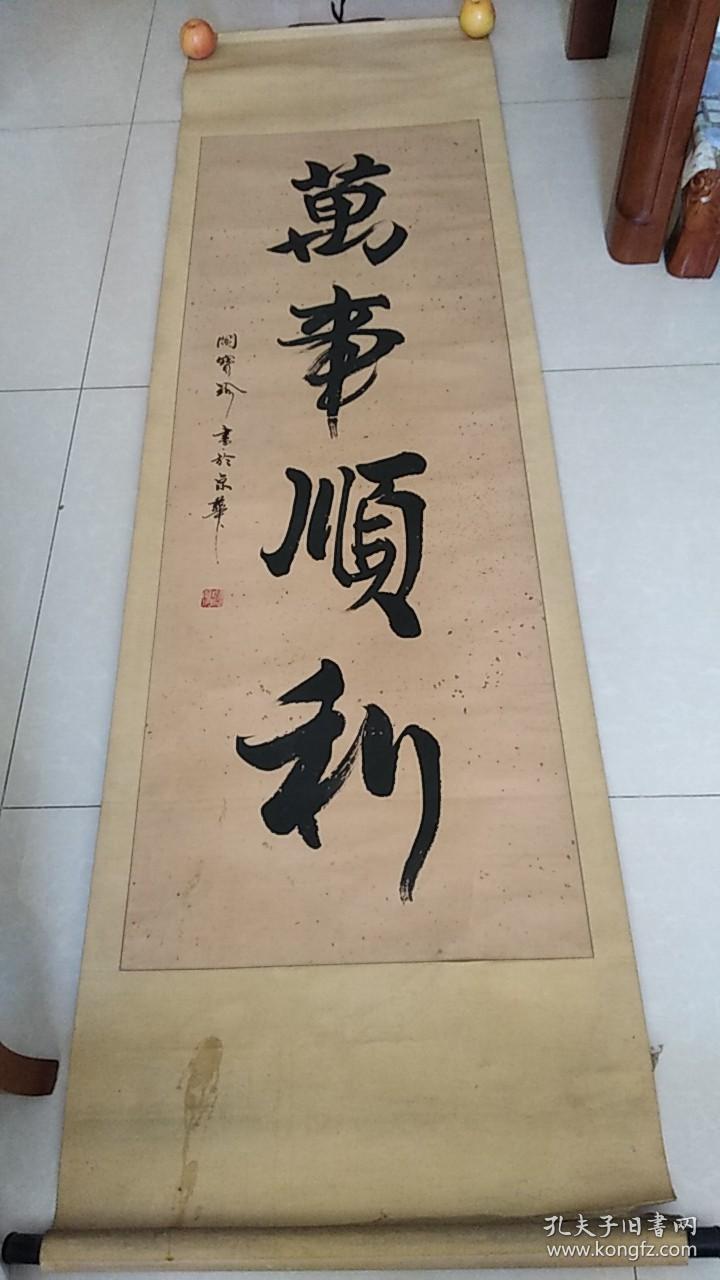 萬事順利
書於京華
孔夫子旧書网
www.kongfz.com